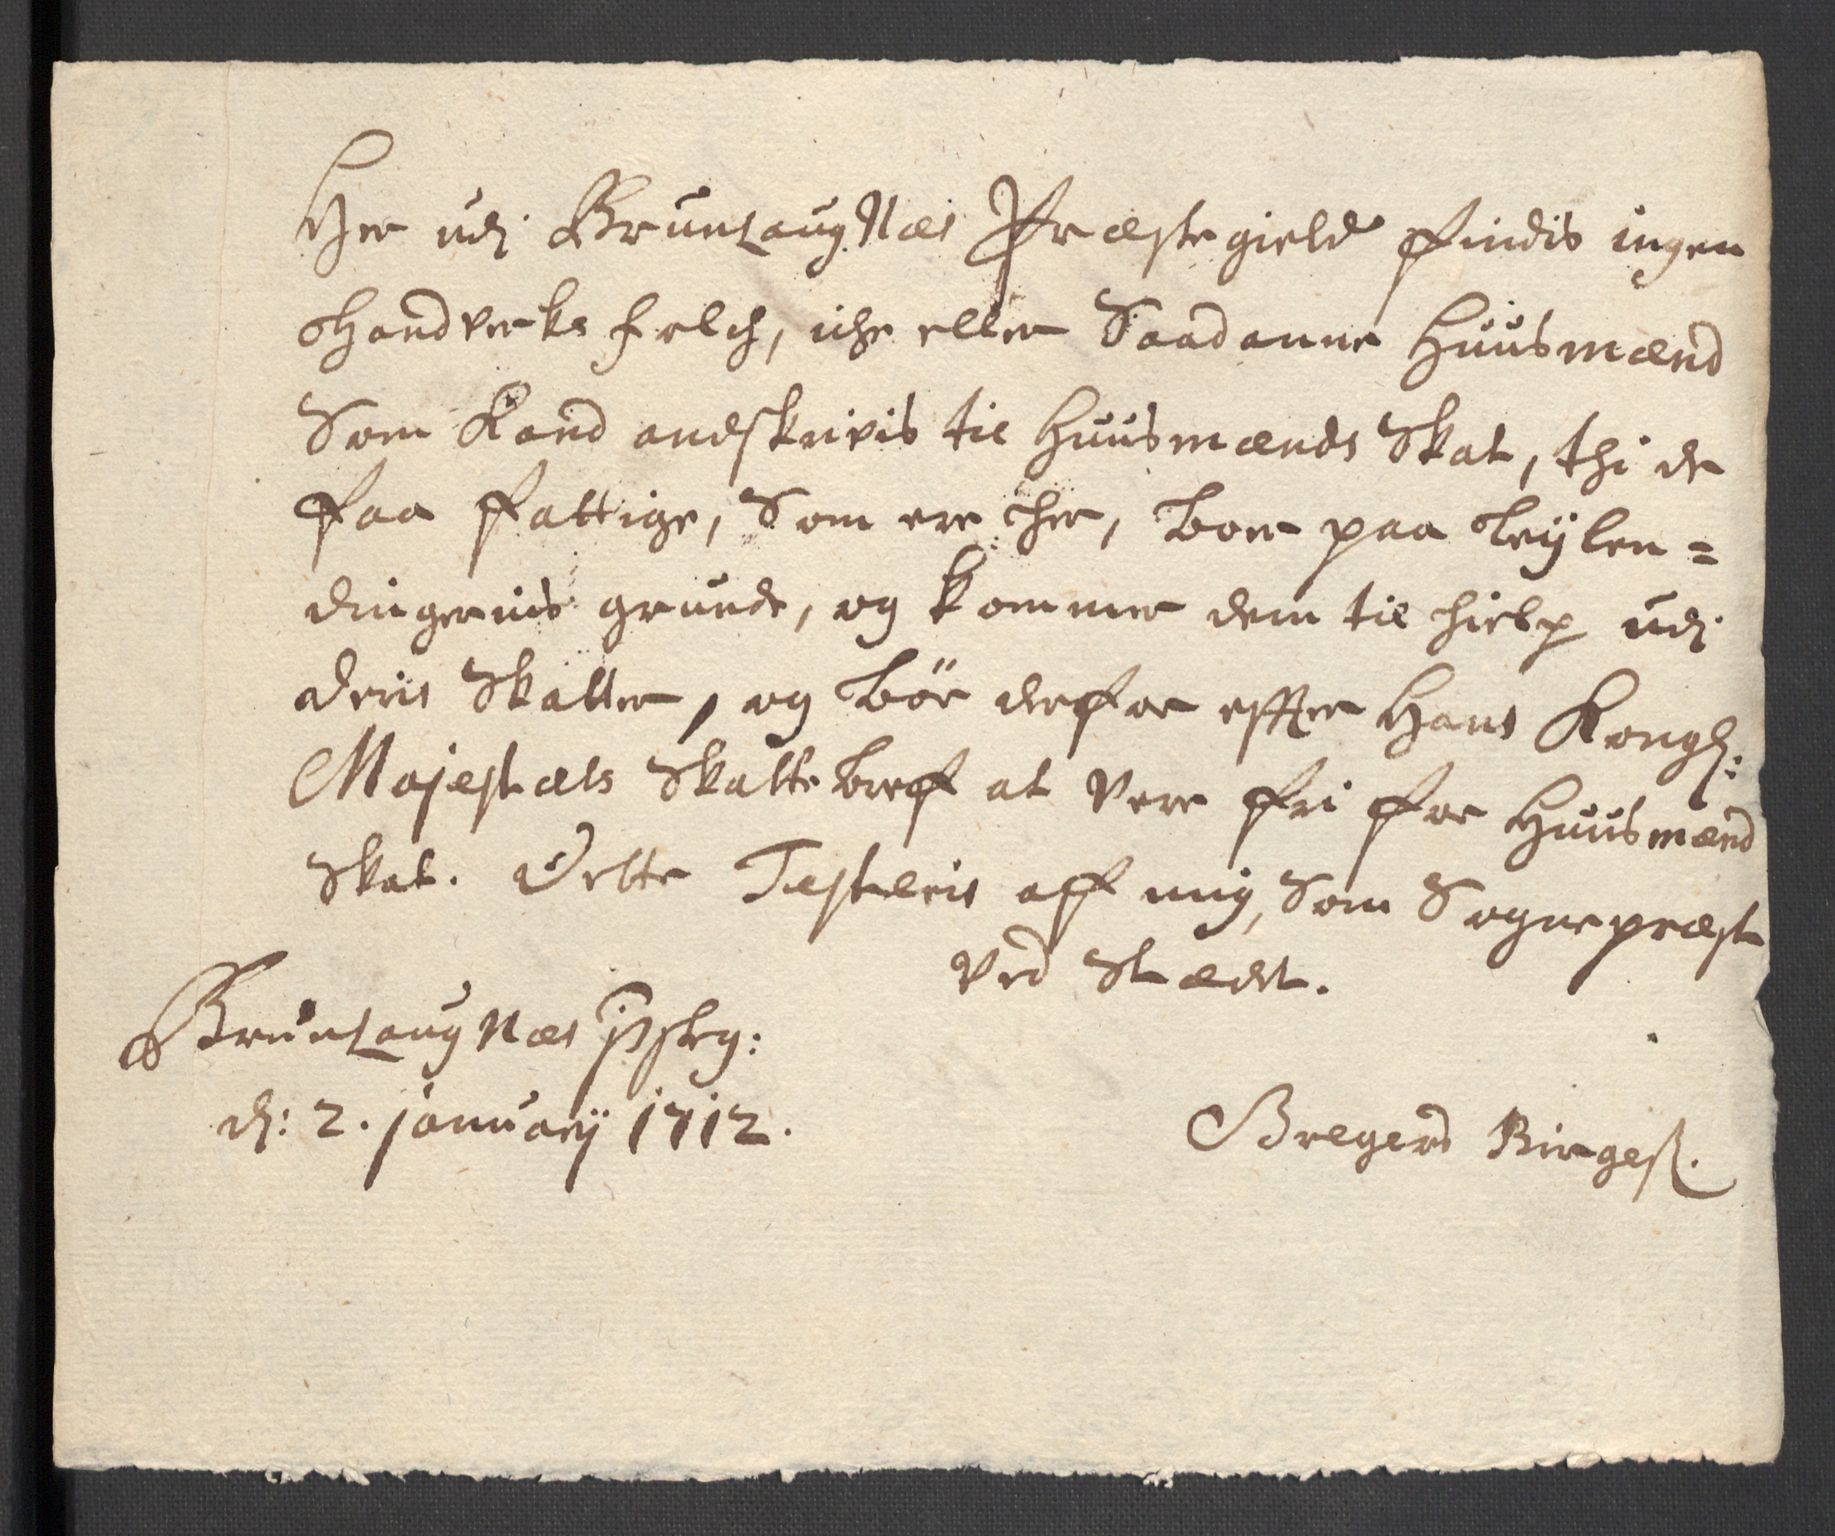 Her udj BrunLaugNæs Præstegield findis ingen
Handverks folch, iche eller Saadanne Huusmænd
Som Kand andskrivis til Huusmænds Skat, thi de
faa fattige, Som ere her, boer paa Leÿlen=
dingernis grunde, og kommer dem til hielp udj
deris Skatter, og bör derfor effter Hans Kongl:
Majestæts Skattebref at vere fri for Huusmænd
Skat. Dette Testeris aff mig, Som Sognepræst
ved Stædet.
BrunLaugNæs Pstg:
dj: 2. januarÿ 1712.
Bregerd Birges.